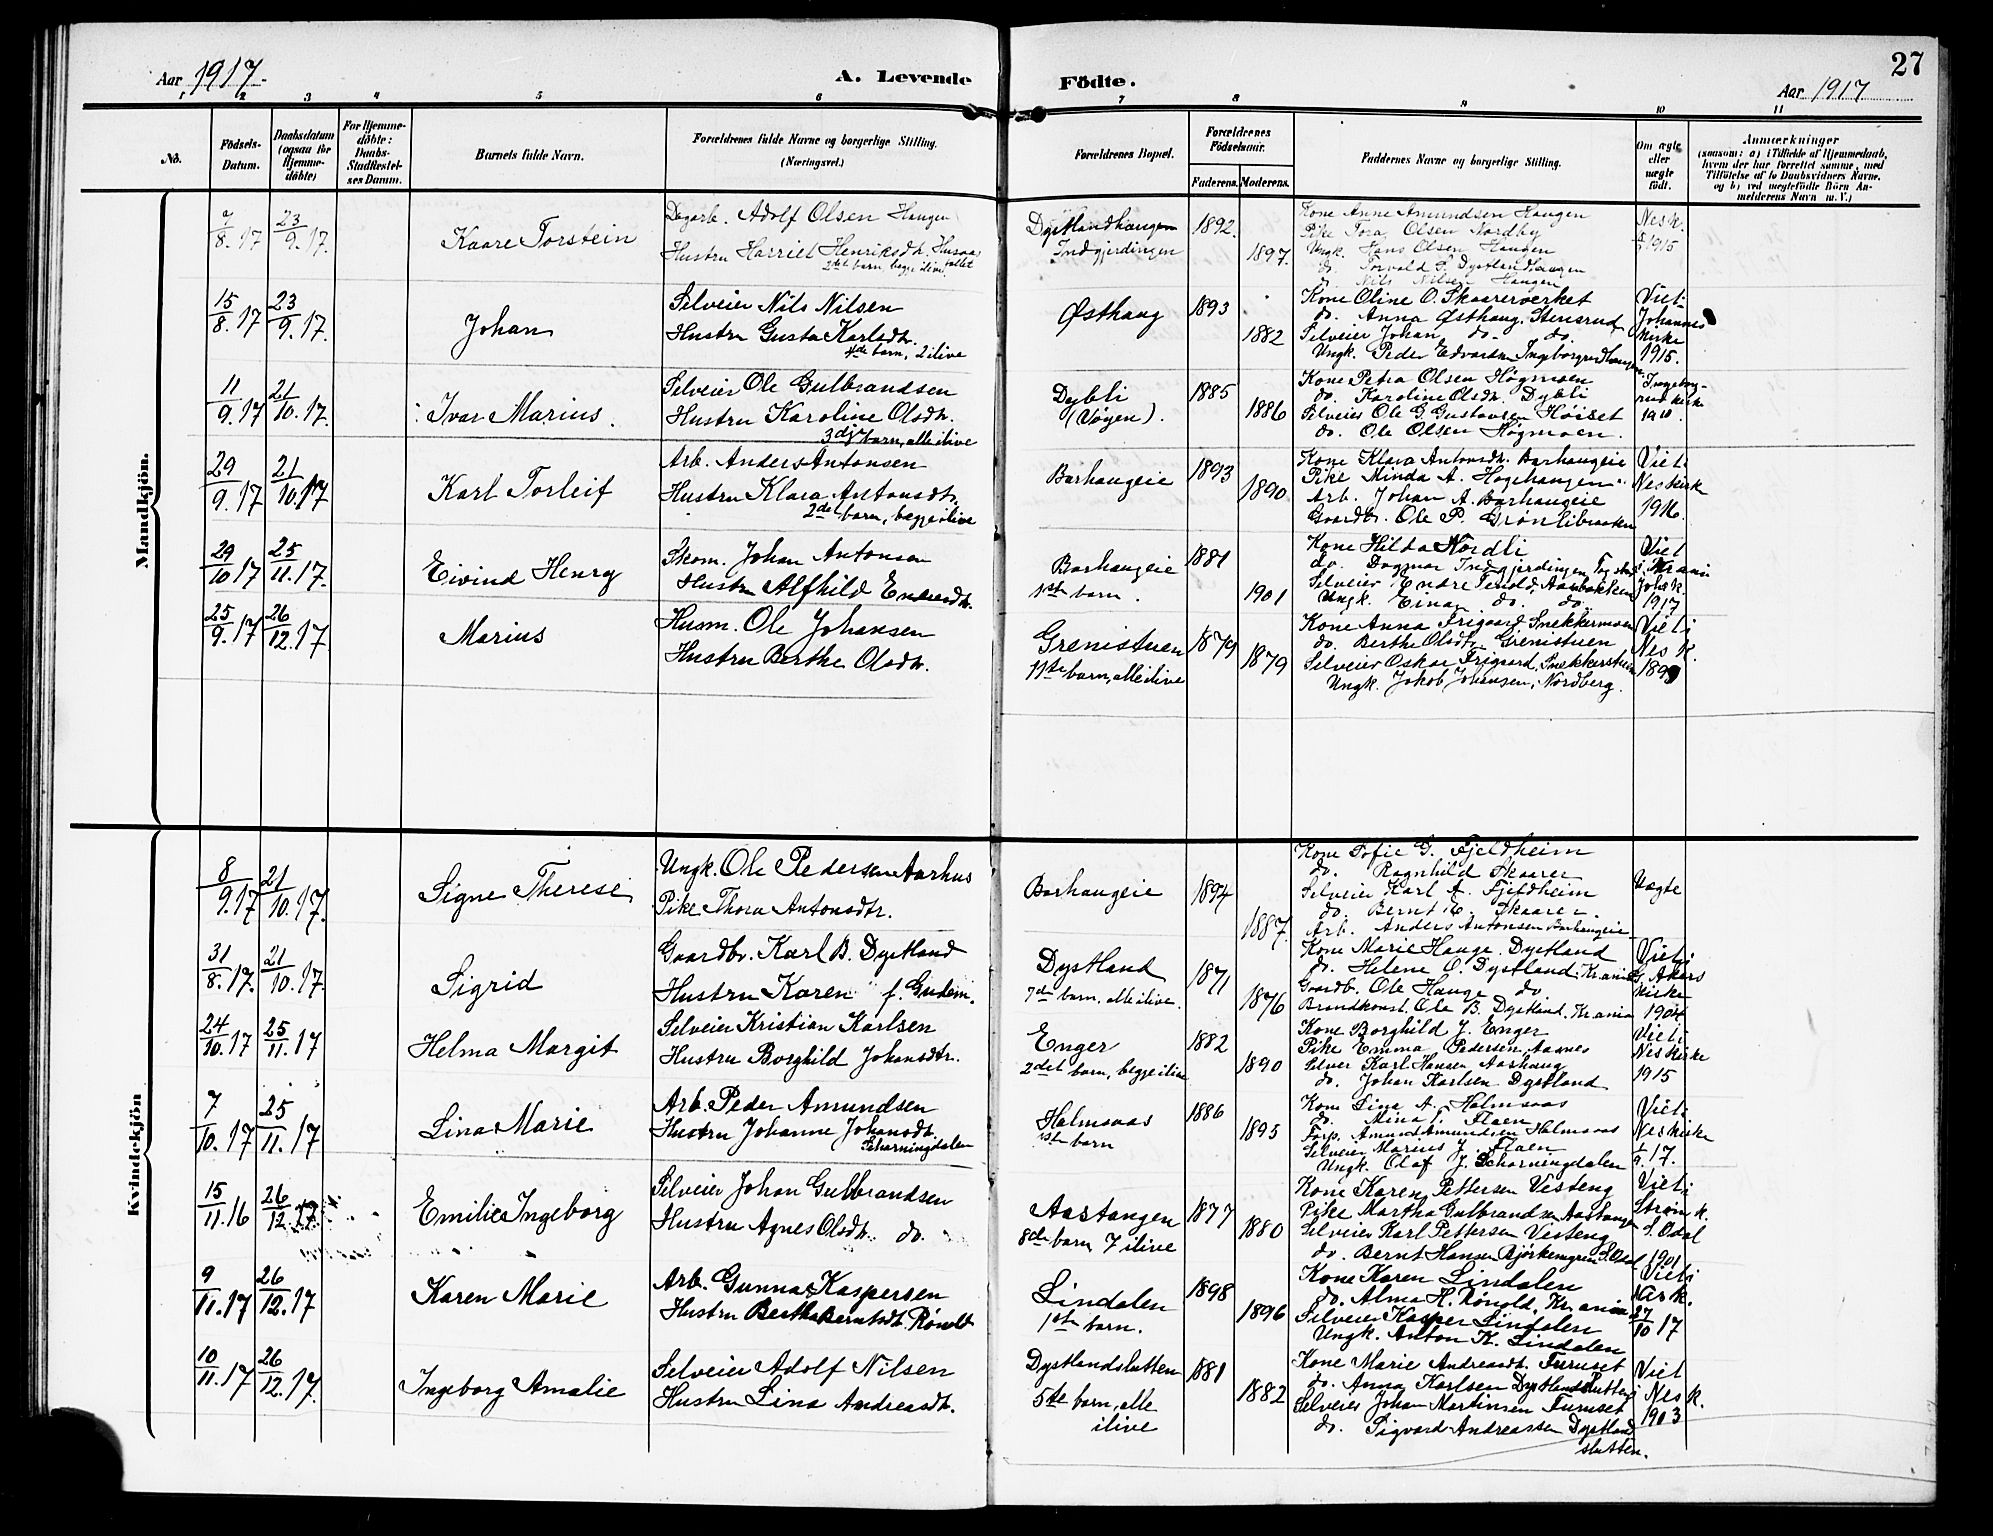 27
Aar 1917.
A. Levende
Födte.
Aar 1917
1 2 3 4 5 6 7 8 9 10 11
No.
Födsels-Datum.
Daabsdatum (ogsaa for Hjemme-döbte)
For Hjemme-döbte: Daabs-Stadfæstel-ses Datum.
Barnets fulde Navn.
Forældrenes fulde Navne og borgerlige Stilling. (Næringsvei.)
Forældrenes Bopæl.
Forældrenes Födselsaar.
Faderens.
Moderens.
Faddernes Navne og borgerlig Stilling.
Om ægte eller uægte födt.
Anmærkninger
(saasom: a) i Tilfælde af Hjemmedaab, hvem der har forrettet samme, med Tilföielse af to Daabsvidners Navne, og b) ved uægtefödte Börn An-melderens Navn m. V.)
Mandkjön.
7/8.17
23/9.17.
Kaare Torstein
Dagarb. Adolf Olsen Haugen
Hustru Harriet Henriksdt.
2det barn, begge ilive.
Dystlandhaugen
Indgjerdingen
1892.
1897.
Kone Anne Amundsen Haugen
Pike Tora Olsen Nordby
Ungk. Hans Olsen Haugen
do. Torvald P. Dystlandhaugen
do. Nils Nilsen Haugen
Nesk.
1915
15/8.17
23/9.17.
Johan
Selveier Nils Nilsen
Hustru Gusta Karlsdt.
4de barn, 2 ilive
Østhaug
1893
1882
Kone Oline O. Skaarerverket
do. Anna Østhaug, Stensrud
Selveier Johan do. do.
Ungk. Peder Edvardsen Ingeborgrudhaugen
Viet i
Johannes
kirke
1915.
11/9.17
21/10.17.
Ivar Marius.
Selveier Ole Gulbrandsen
Hustru Karoline Olsdt.
3dje barn, alle ilive
Dybli
(Vøyen).
1885
1886
Kone Petra Olsen Høgmoen
do. Karoline Olsdt. Dybli
Selveier Ole G. Gustavsen Höiset
do. Ole Olsen Høgmoen.
Ingeborg-
rud kirk
1910.
29/9.17
21/10.17
Karl Torleif
Arb. Anders Antonsen
Hustru Klara Antonsdt.
2det barn, begge ilive
Barhaugeie
1893
1890
Kone Klara Antonsdt. Barhaugeie
Pike Minda A. Hagehaugen
Arb. Johan A. Barhaugeie
Gaardbr. Ole P. Grønlibraaten
Viet i
Neskirk
1916.
29/10.17
25/11.17.
Eivind Henry
Skom. Johan Antonsen
Hustru Alfhild Endresdt.
Barhaugeie
1ste barn.
1881
1901
Kone Hilda Nordli
do. Dagmar Indgjerdingen
Selveier Endre Aasbakken
Ungk. Einar do. do.
Viet
i Krania
Joh. k.
1917
25/9.17
26/12.17
Marius
Husm. Ole Johansen
Hustru Berthe Olsdt.
Grenistuen
11te barn, alle ilive
1879
1879
Kone Anna Frigaard Snekkermoen
do. Berthe Olsdt. Grenistuen
Selveier Oskar Frigaard, Snekkerstuen
Ungk. Jakob Johansen, Nordberg.
Viet i
Nes k.
1899
Kvindekjön
8/9.17
21/10.17.
Signe Therese
Ungk. Ole Pedersen Aarhus
Pike Thora Antonsdtr.
Barhaugeie
1894
1887.
Kone Sofie G. Fjeldheim
do. Ragnhild Skaarer
Selveier Karl A. Fjeldheim
do. Bernt E. Skaarer.
Arb. Anders Antonsen Barhaugeie
Uægte
31/8.17.
21/10.17.
Sigrid
Gaardbr. Karl B. Dystland
Hustru Karen " f. Gudem.
Dystland
7de barn, alle ilive.
1871
1876
Kone Marie Hauge. Dystland
do. Helene O. Dystland. Krania
Gaardb. Ole Hauge do
Brandkonst. Ole B. Dystland, Krania
Viet i
G. Akers
kirke
1904
24/10.17
25/11.17
Helma Margit
Selveier Kristian Karlsen
Hustru Borghild Johansdtr.
Enger
2det barn, begge ilive
1882
1890
Kone Borghild J. Enger
Pike Emma Pedersen, Aasnes
Selveier Karl Hansen Aashaug
do. Johan Karlsen Dystland
Viet i
Neskirke
1915
7/10.17
25/11.17
Lina Marie
Arb. Peder Amundsen
Hustru Johanne Johansdt.
Scharningdalen
Holmsaas
1ste barn
1886
1895
Kone Lina A. Holmsaas
do. Mina Flaen
Forp. Amund Amundsen Holmsaas
Selveier Marius J. Flaen
Ungk. Olaf J. Scharningdalen
Viet i
Neskirke
1/9.17.
15/11.16
26/12.17.
Emilie Ingeborg
Selveier Johan Gulbrandsen
Hustru Agnes Olsdt. do.
Aastangen
8de barn, 7 ilive
1877
1880
Kone Karen Pettersen Vesteng
Pike Martha Gulbrandsen Aastangen
Selveier Karl Pettersen Vesteng
do. Bernt Hansen Björkengren S. Odal
Viet i
Strøm k.
S. Odal
1901
9/11.17
26/12.17
Karen Marie
Arb. Gunnar Kaspersen
Hustru Bertha Berntsdt. Rønold
Lindalen
1ste barn.
1898
1896
Kone Karen Lindalen
do. Alma H. Rønold, Krania
Selveier Kasper Lindalen
Ungk. Anton K. Lindalen
Viet i
27/10 17
10/11.17
26/12.17.
Ingeborg Amalie
Selveier Adolf Nilsen
Hustru Lina Andreasdt.
Dystlandslutten
5te barn, alle
ilive
1881
1882
Kone Marie Andreasdt. Furuset
do. Anna Karlsen Dystlandslutten
Selveier Johan Martinsen Furuset
do. Sigvard Andreassen Dystland
slutten.
Viet
i Nes k.
1903